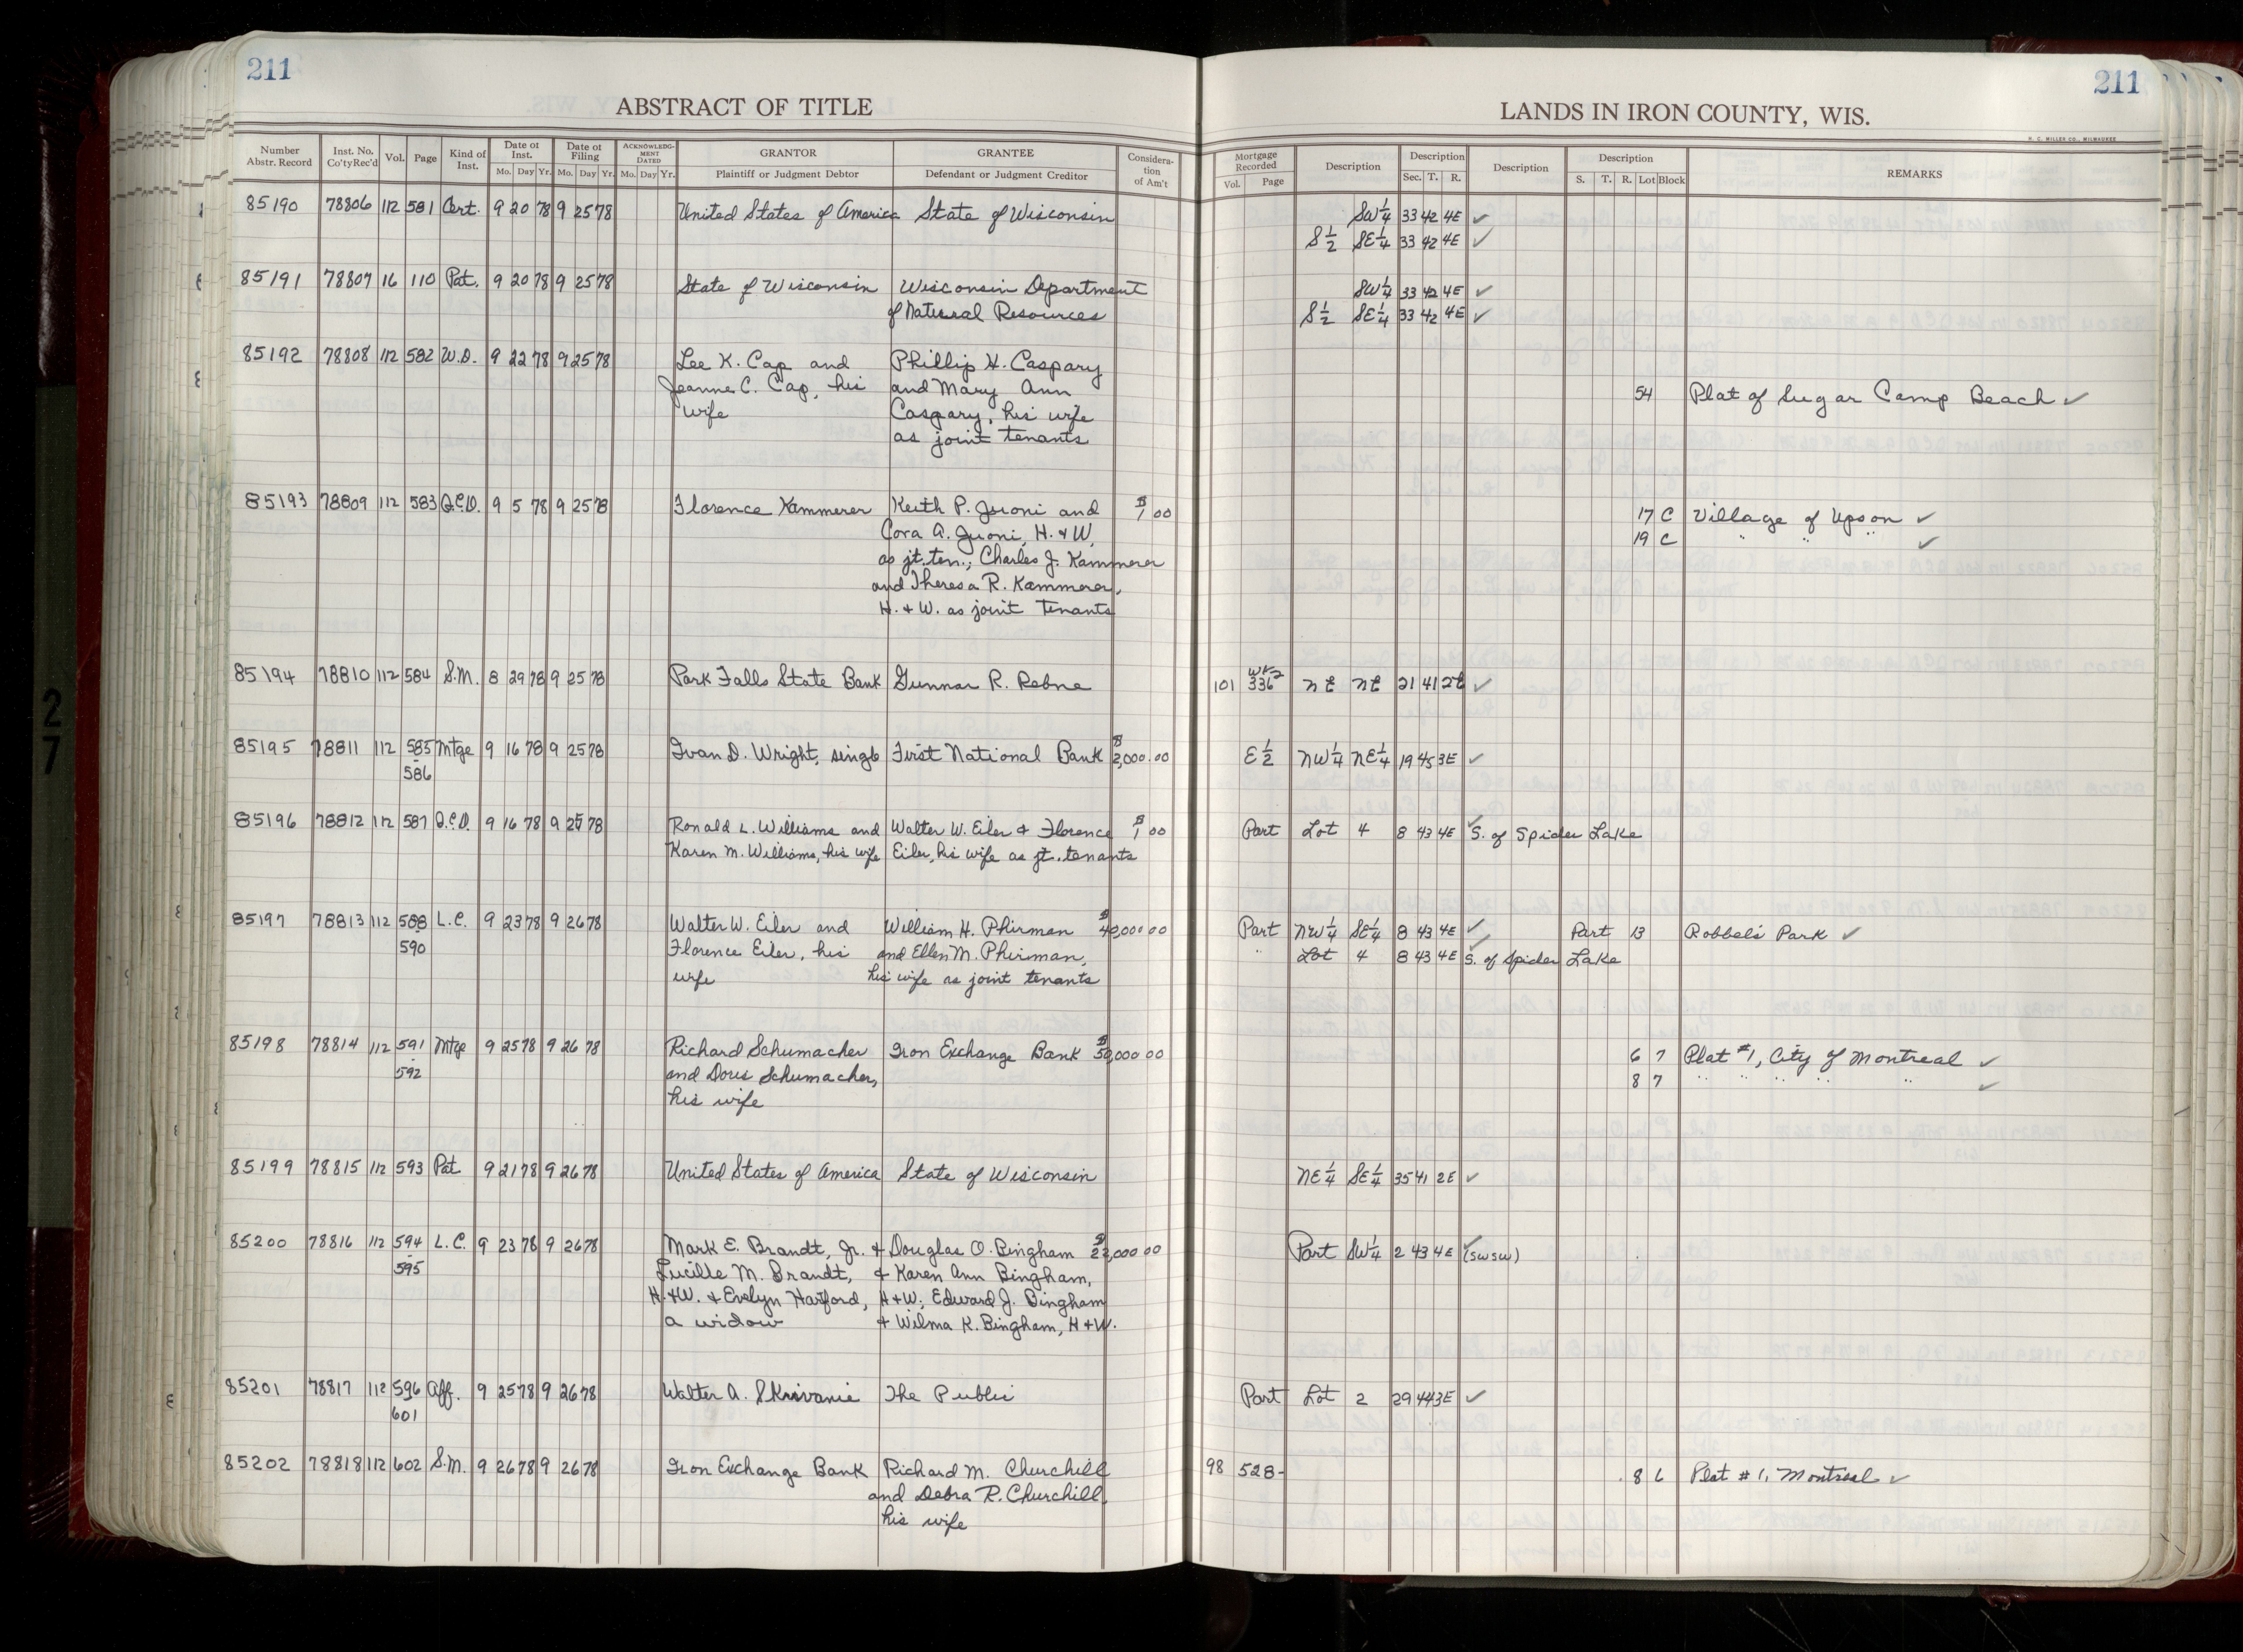 211
211
ABSTRACT OF TITLE
LANDS IN IRON COUNTY, WIS.
H. C. MILLER CO., MILWAUKEE
Number Abstr. Record Inst. No. Co'ty Rec'd Vol. Page Kind of Inst. Date of Inst. Mo. Day Yr. Date of Filing Mo. Day Yr. ACKNOWLEDGMENT DATED Mo. Day Yr. GRANTOR Plaintiff or Judgment Debtor GRANTEE Defendant or Judgment Creditor Consideration of Am't Mortgage Recorded Vol. Page Description Description Sec. T. R. Description Description S. T. R. Lot Block REMARKS
85190 78806 112 581 Cert. 9 20 78 9 25 78 United States of America State of Wisconsin SW¼ 33 42 4E ✓
S½ SE¼ 33 42 4E ✓
85191 78807 16 110 Pat. 9 20 78 9 25 78 State of Wisconsin Wisconsin Department SW¼ 33 42 4E ✓
of Natural Resources S½ SE¼ 33 42 4E ✓
85192 78808 112 582 W.D. 9 22 78 9 25 78 Lee K. Cap and Phillip H. Caspary
Jeanne C. Cap, his and Mary Ann 54 Plat of Sugar Camp Beach ✓
wife Caspary, his wife
as joint tenants
85193 78809 112 583 Q.C.D. 9 5 78 9 25 78 Florence Kammerer Keith P. Juoni and $1 00 17 C Village of Upson ✓
Cora A. Juoni, H. & W. 19 C " " " ✓
as jt. ten.; Charles J. Kammerer
and Theresa R. Kammerer,
H. & W. as joint Tenants
85194 78810 112 584 S.M. 8 29 78 9 25 78 Park Falls State Bank Gunnar R. Rebne 101 336 NE NE 21 41 2E ✓
85195 78811 112 585 Mtge 9 16 78 9 25 78 Ivan D. Wright, single First National Bank $2,000.00 E½ NW¼ NE¼ 19 45 3E ✓
- 586
85196 78812 112 587 Q.C.D. 9 16 78 9 25 78 Ronald L. Williams and Walter W. Eiler & Florence $1 00 Part Lot 4 8 43 4E ✓ S. of Spider Lake
Karen M. Williams, his wife Eiler, his wife as jt. tenants
85197 78813 112 588 L.C. 9 23 78 9 26 78 Walter W. Eiler and William H. Phirman $40,000 00 Part NW¼ SE¼ 8 43 4E ✓ Part 13 Robbel's Park ✓
590 Florence Eiler, his and Ellen M. Phirman, " Lot 4 8 43 4E ✓ S. of Spider Lake
wife his wife as joint tenants
85198 78814 112 591 Mtge 9 25 78 9 26 78 Richard Schumacher Iron Exchange Bank $50,000 00 6 7 Plat #1, City of Montreal ✓
- 592 and Doris Schumacher, 8 7 " " " " " ✓
his wife
85199 78815 112 593 Pat 9 21 78 9 26 78 United States of America State of Wisconsin NE¼ SE¼ 35 41 2E ✓
85200 78816 112 594 L.C. 9 23 78 9 26 78 Mark E. Brandt, Jr. & Douglas O. Bingham $22,000 00 Part SW¼ 2 43 4E ✓ (SWSW)
- 595 Lucille M. Brandt, & Karen Ann Bingham,
H. & W. & Evelyn Hartford, H & W; Edward J. Bingham
a widow & Wilma K. Bingham, H & W.
85201 78817 112 596 Aff. 9 25 78 9 26 78 Walter A. Skrivanie The Public Part Lot 2 29 44 3E ✓
- 601
85202 78818 112 602 S.M. 9 26 78 9 26 78 Iron Exchange Bank Richard M. Churchill 98 528 8 6 Plat #1, Montreal ✓
and Debra R. Churchill,
his wife
27